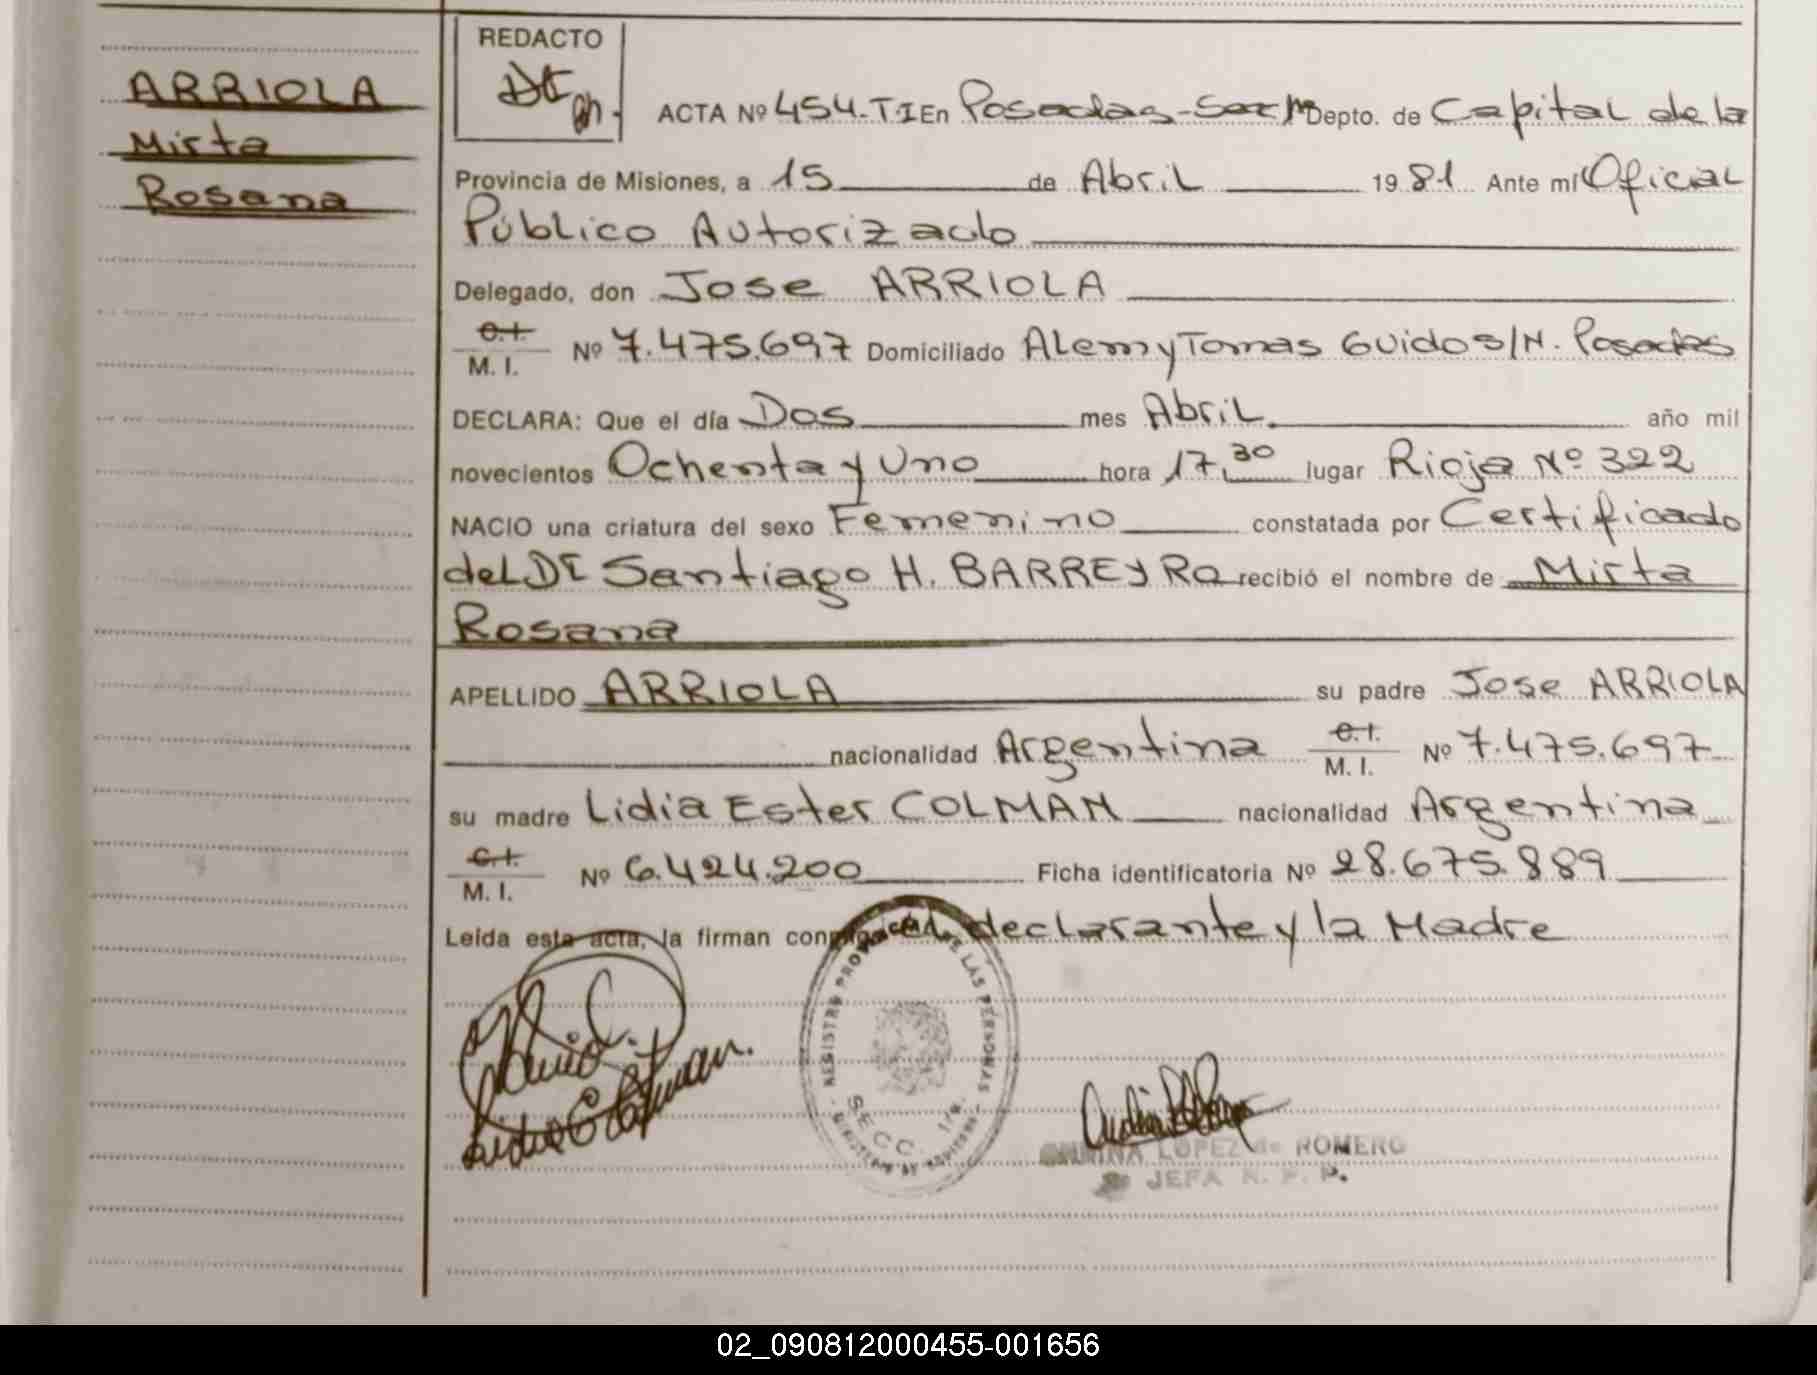 ARRIOLA
Mirta
Rosana
REDACTO
ACTA Nº 454-T.I En Posadas-Secc 1ra Depto. de Capital de la
Provincia de Misiones, a 15 de Abril 1981 Ante mí Oficial
Público Autorizado
Delegado, don Jose ARRIOLA
C.I. M.I. Nº 7.475.697 Domiciliado Alem y Tomas Guido S/N. Posadas
DECLARA: Que el día Dos mes Abril. año mil
novecientos Ochenta y Uno hora 17,30 lugar Rioja Nº 322
NACIO una criatura del sexo Femenino constatada por Certificado
del Dr Santiago H. BARREYRO recibió el nombre de Mirta
Rosana
APELLIDO ARRIOLA su padre Jose ARRIOLA
nacionalidad Argentina C.I. M.I. Nº 7.475.697
su madre Lidia Ester COLMAN nacionalidad Argentina
C.I. M.I. Nº 6.424.200 Ficha identificatoria Nº 28.675.889
Leída esta acta, la firman conmigo el declarante y la Madre
REGISTRO PROVINCIAL DE LAS PERSONAS
SECC. 1ra.
LOPEZ de ROMERO
JEFA
02_090812000455-001656